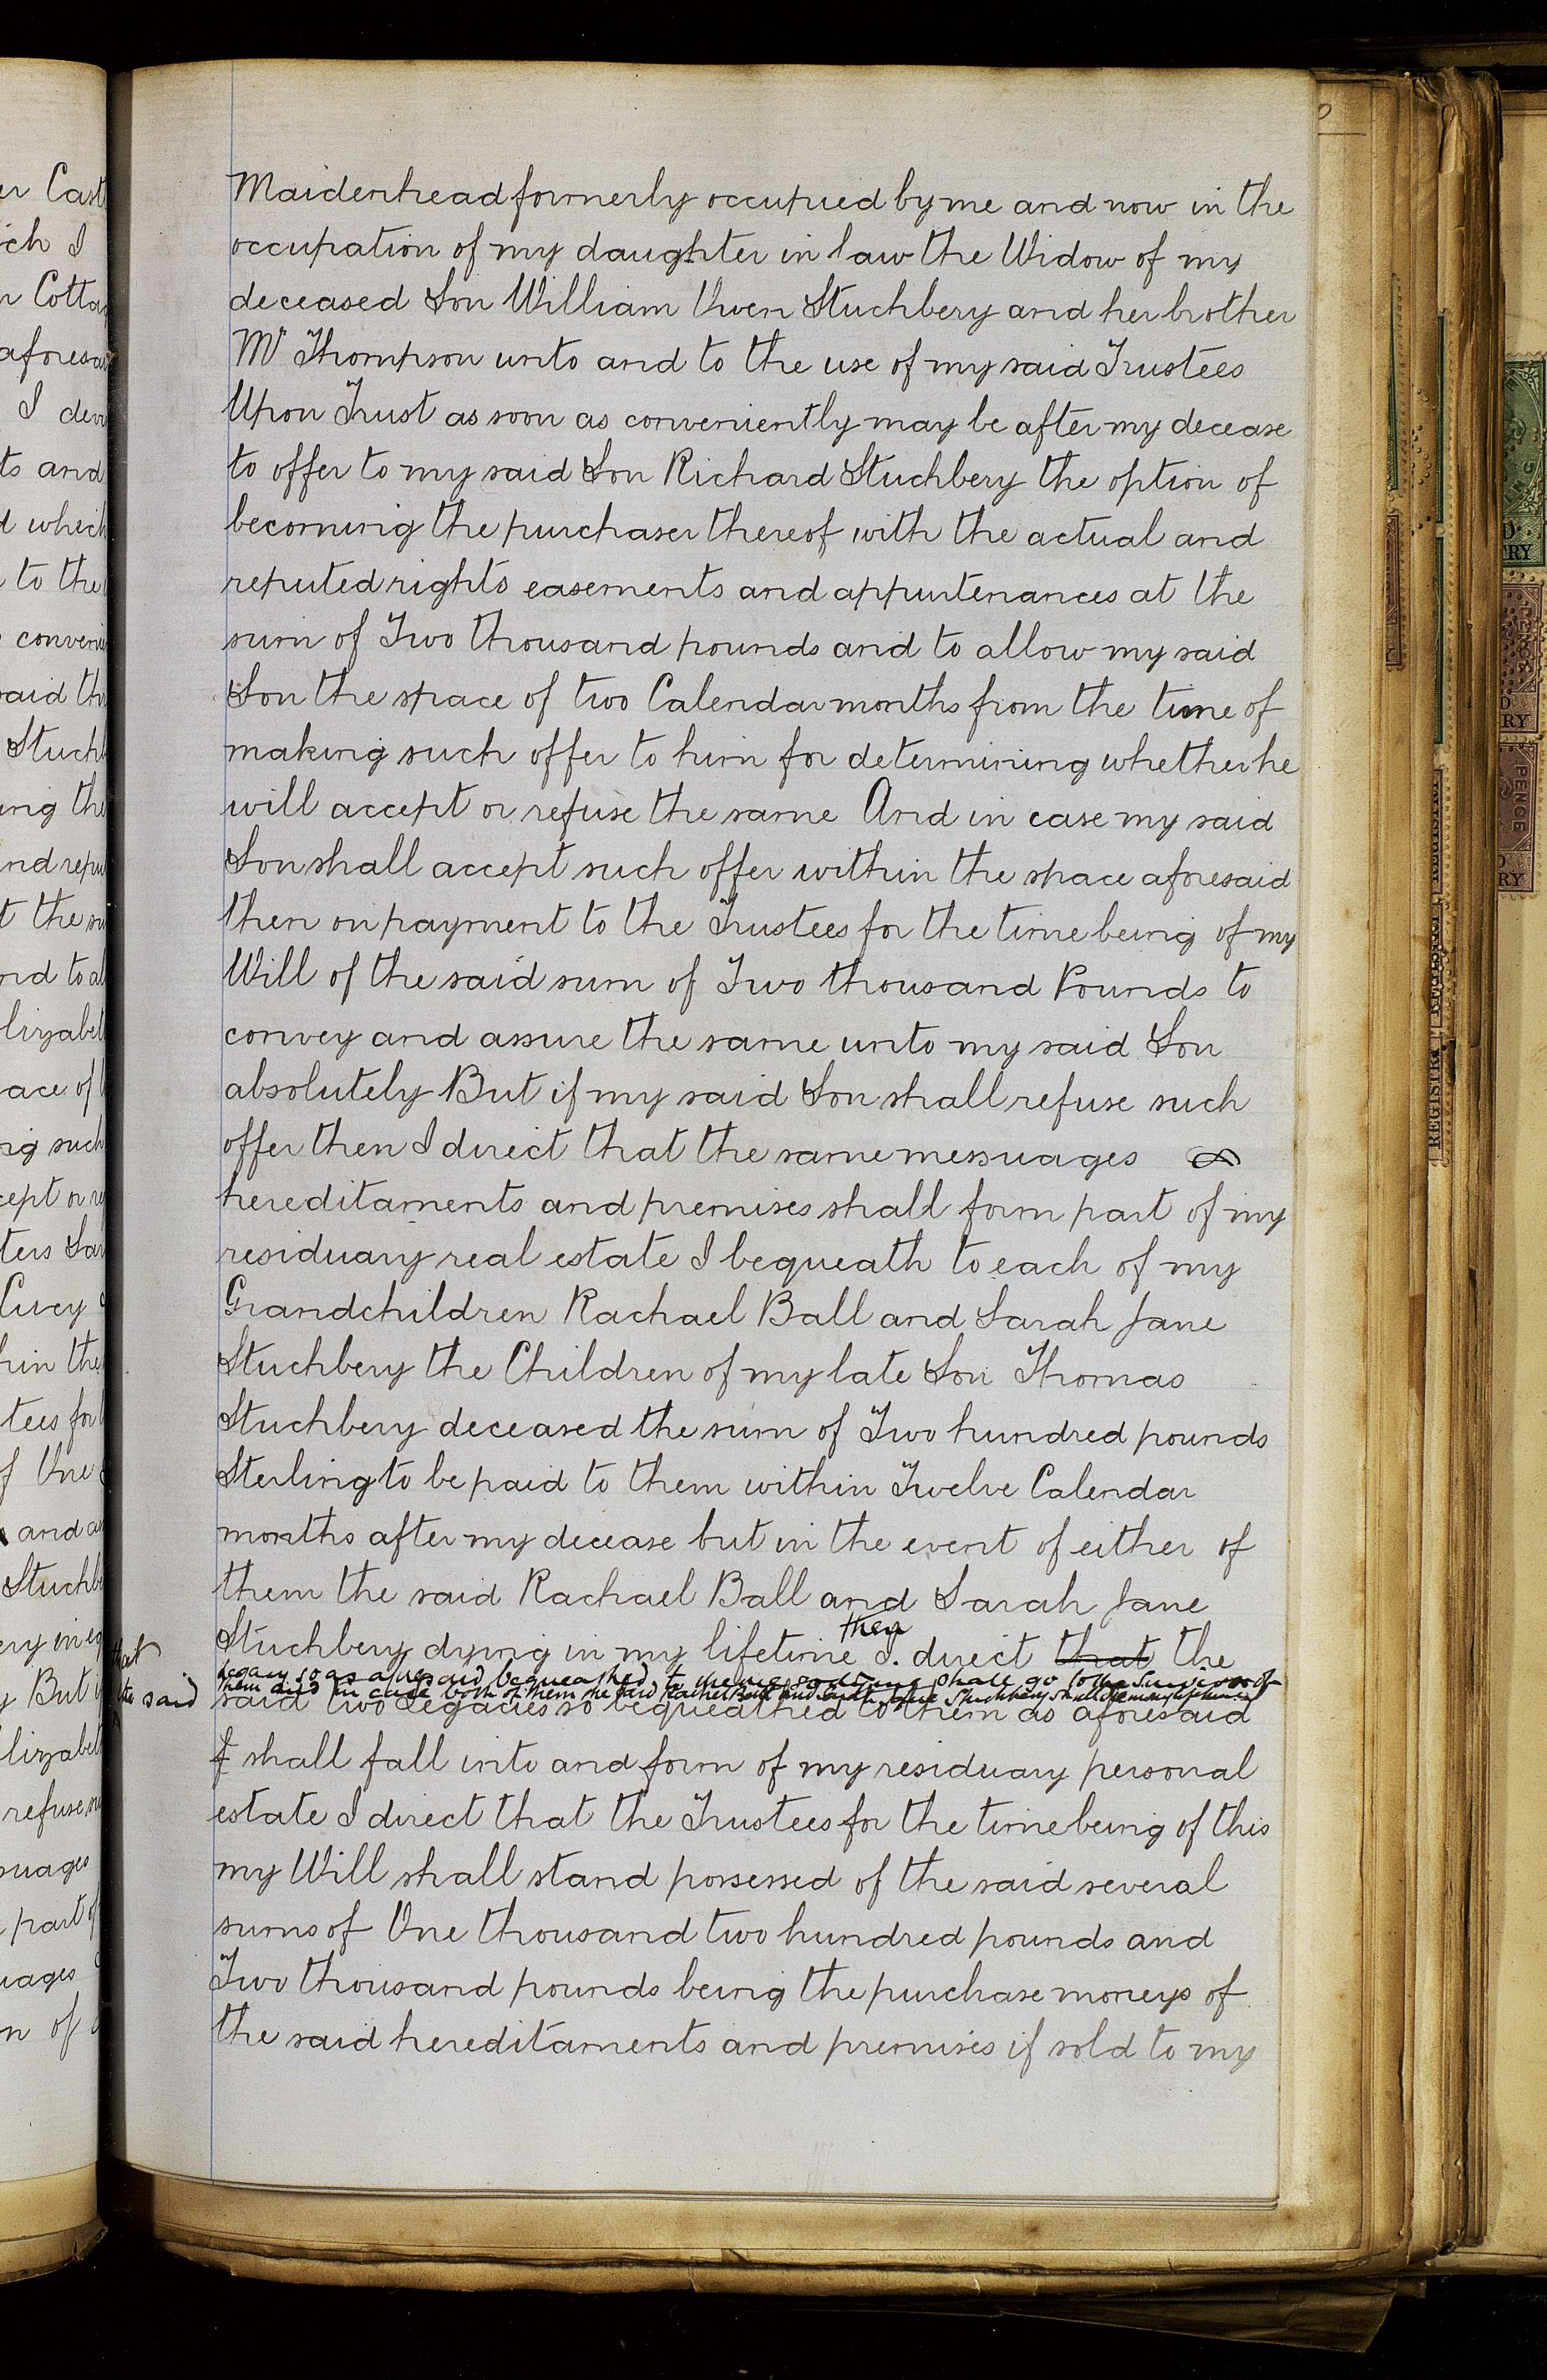 Maidenhead formerly occupied by me and now in the
occupation of my daughter in law the Widow of my
deceased Son William Owen Stuchbery and her brother
Mr Thompson unto and to the use of my said Trustees
Upon Trust as soon as conveniently may be after my decease
to offer to my said Son Richard Stuchbery the option of
becoming the purchaser thereof with the actual and
reputed rights easements and appurtenances at the
sum of Two thousand pounds and to allow my said
Son the space of two Calendar months from the time of
making such offer to him for determining whether he
will accept or refuse the same And in case my said
Son shall accept such offer within the space aforesaid
then on payment to the Trustees for the time being of my
Will of the said sum of Two thousand Pounds to
convey and assure the same unto my said Son
absolutely But if my said Son shall refuse such
offer then I direct that the same messuages
hereditaments and premises shall form part of my
residuary real estate I bequeath to each of my
Grandchildren Rachael Ball and Sarah Jane
Stuchbery the Children of my late Son Thomas
Stuchbery deceased the sum of Two hundred pounds
Sterling to be paid to them within Twelve Calendar
months after my decease but in the event of either of
them the said Rachael Ball and Sarah Jane
then
Stuchbery dying in my lifetime I direct that the
legacy so as aforesaid bequeathed to the one so dying shall go to the Survivor of
them and in case both of them the said Rachel Ball and Sarah Jane Stuchbery shall die in my lifetime
that
the said
said two legacies so bequeathed to them as aforesaid
shall fall into and form of my residuary personal
estate I direct that the Trustees for the time being of this
my Will shall stand possessed of the said several
sums of One thousand two hundred pounds and
Two thousand pounds being the purchase moneys of
the said hereditaments and premises if sold to my
ich I
aforesa
I dev
ts and
which
to the
said th
Stuchb
ing the
nd repu
t the su
nd to al
lizabet
ace of
ng such
Lucy
hin the
tees for
of One
and a
Stuchbe
But
lizabet
refuse
suages
part of
uages
n of
PENCE
REGISTRY
RY